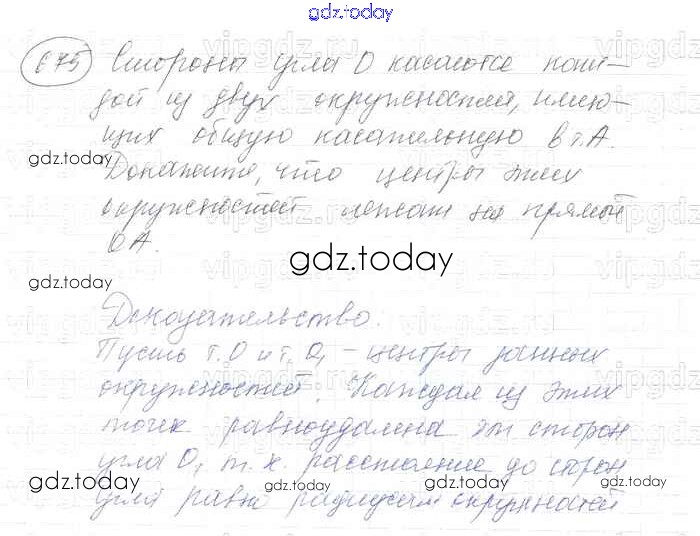 gdz.today
675 Стороны угла О касаются каж-
дой из двух окружностей, имею-
щих общую касательную в т.А.
gdz.today
Докажите, что центры этих
окружностей лежат на прямой
ОА.
gdz.today
gdz.today
Доказательство.
Пусть т.О и т.О₁ – центры данных
окружностей. Каждая из этих
точек равноудалена от сторон
угла О, т.к. расстояние до сторон
gdz.today gdz.today gdz.today
угла равно радиусам окружностей